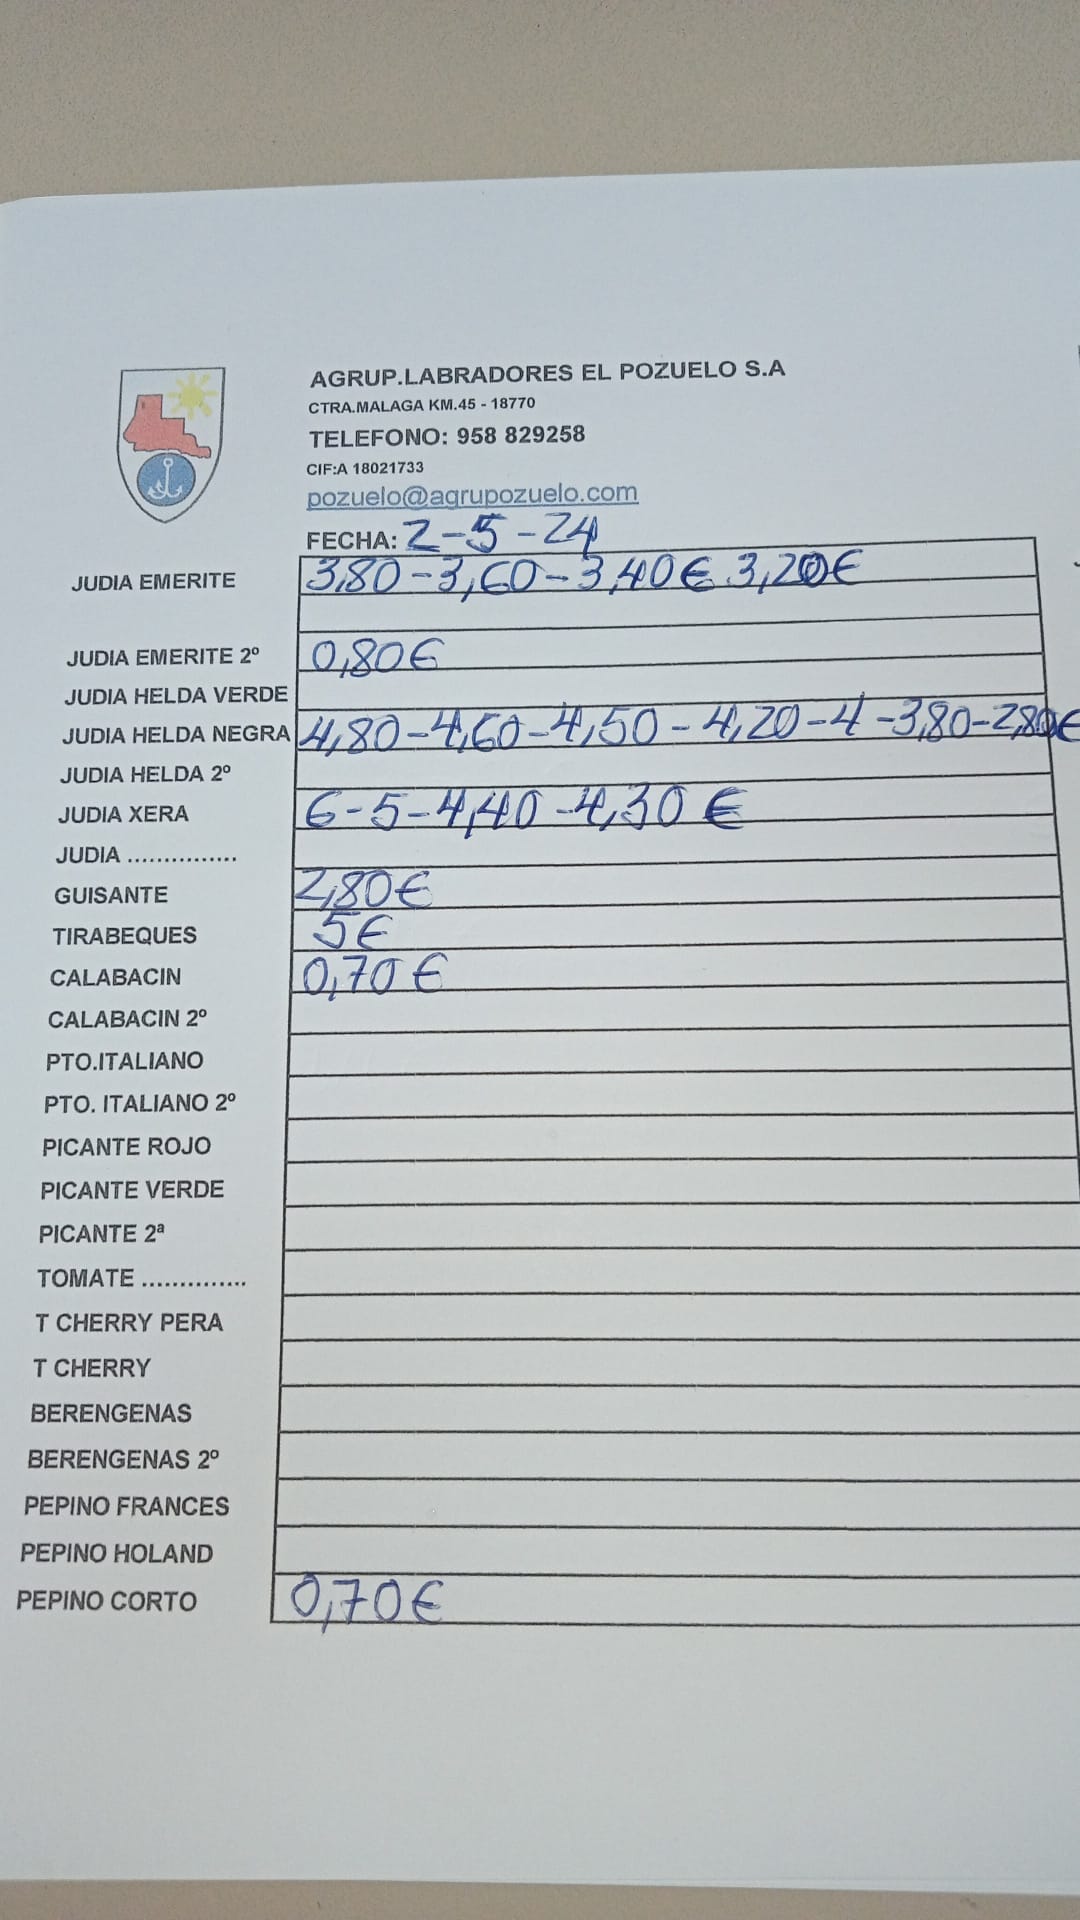 AGRUP.LABRADORES EL POZUELO S.A
CTRA.MALAGA KM.45 - 18770
TELEFONO: 958 829258
CIF:A 18021733
pozuelo@agrupozuelo.com
FECHA: 2-5-24
JUDIA EMERITE 3,80-3,60-3,40€ 3,20€
JUDIA EMERITE 2º 0,80€
JUDIA HELDA VERDE
JUDIA HELDA NEGRA 4,80-4,60-4,50-4,20-4-3,80-2,80€
JUDIA HELDA 2º
JUDIA XERA 6-5-4,40-4,30€
JUDIA ...............
GUISANTE 2,80€
TIRABEQUES 5€
CALABACIN 0,70€
CALABACIN 2º
PTO.ITALIANO
PTO. ITALIANO 2º
PICANTE ROJO
PICANTE VERDE
PICANTE 2ª
TOMATE ..............
T CHERRY PERA
T CHERRY
BERENGENAS
BERENGENAS 2º
PEPINO FRANCES
PEPINO HOLAND
PEPINO CORTO 0,70€